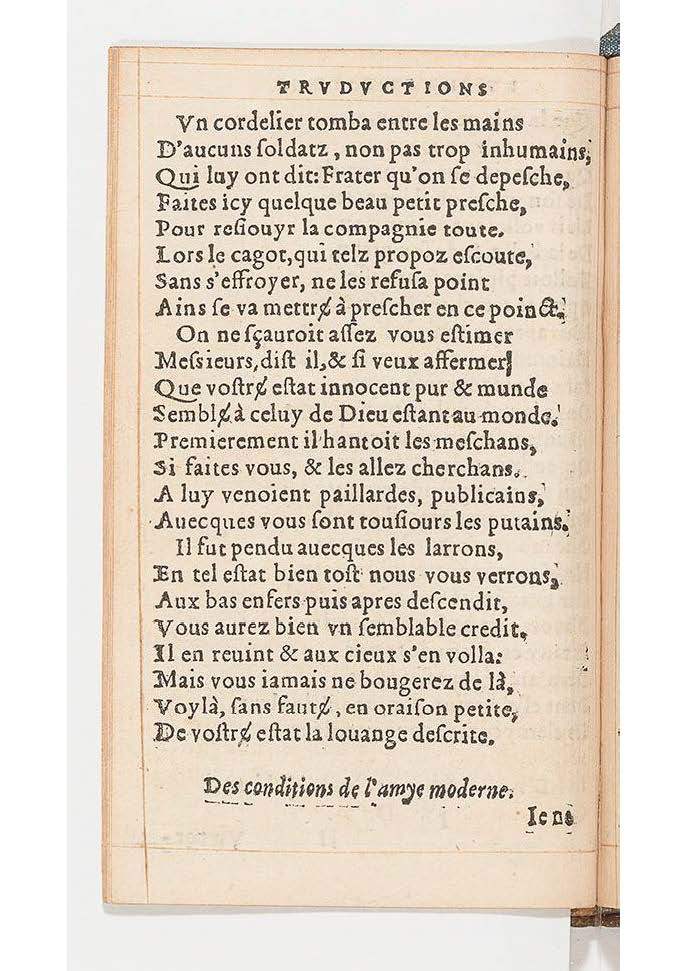 TRVDVCTIONS
Vn cordelier tomba entre les mains
D'aucuns ſoldatz, non pas trop inhumains,
Qui luy ont dit: Frater qu'on ſe depeſche,
Faites icy quelque beau petit preſche,
Pour reſiouyr la compagnie toute.
Lors le cagot, qui telz propoz eſcoute,
Sans s'effroyer, ne les refuſa point
Ains ſe va mettrɇ à preſcher en ce poinct.
On ne sçauroit aſſez vous eſtimer
Meſsieurs, diſt il, & ſi veux affermer
Que voſtrɇ eſtat innocent pur & munde
Semblɇ à celuy de Dieu eſtant au monde.
Premierement il hantoit les meſchans,
Si faites vous, & les allez cherchans.
A luy venoient paillardes, publicains,
Auecques vous ſont touſiours les putains.
Il fut pendu auecques les larrons,
En tel eſtat bien toſt nous vous verrons,
Aux bas enfers puis apres deſcendit,
Vous aurez bien vn ſemblable credit,
Il en reuint & aux cieux s'en volla:
Mais vous iamais ne bougerez de là,
Voylà, ſans fautɇ, en oraiſon petite,
De voſtrɇ eſtat la louange deſcrite.
Des conditions de l'amye moderne.
Ie ne